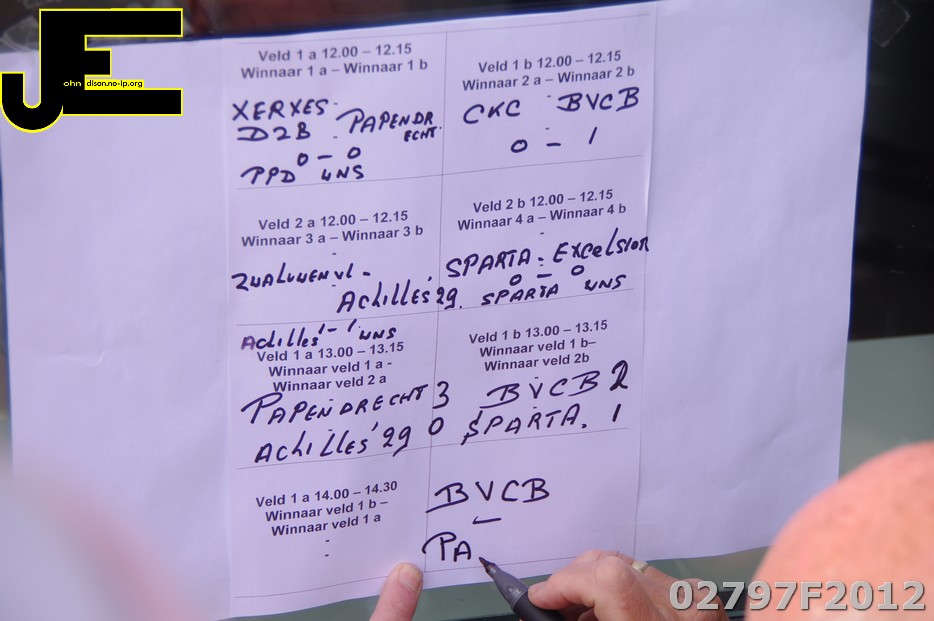 JE
ohn dison.no-ip.org
Veld 1 a 12.00 – 12.15
Winnaar 1 a – Winnaar 1 b
XERXES -
DZB - PAPENDR
ECHT.
0 – 0
PPD WNS
Veld 1 b 12.00 – 12.15
Winnaar 2 a – Winnaar 2 b
CKC - BVCB
0 – 1
Veld 2 a 12.00 – 12.15
Winnaar 3 a – Winnaar 3 b
-
ZWALUWEN VL -
Achilles'29.
Achilles 1 - 1 WNS
Veld 2 b 12.00 – 12.15
Winnaar 4 a – Winnaar 4 b
-
SPARTA - Excelsior
0 – 0
SPARTA WNS
Veld 1 a 13.00 – 13.15
Winnaar veld 1 a -
Winnaar veld 2 a
PAPENDRECHT 3
-
Achilles'29 0
Veld 1 b 13.00 – 13.15
Winnaar veld 1 b–
Winnaar veld 2b
BVCB 2
-
SPARTA. 1
Veld 1 a 14.00 – 14.30
Winnaar veld 1 b –
Winnaar veld 1 a
-
-
BVCB
–
PA
02797F2012